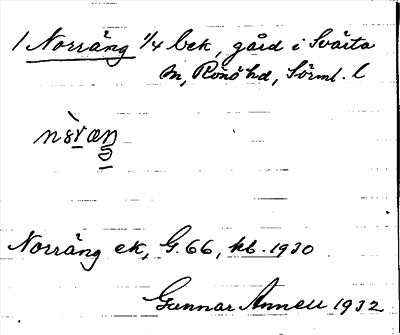 1 Norräng 1/4 bek, gård i Svärta
sn, Rönö hd, Sörml. l
Norräng ek, G.66, kb. 1930
Gunnar Annell 1932